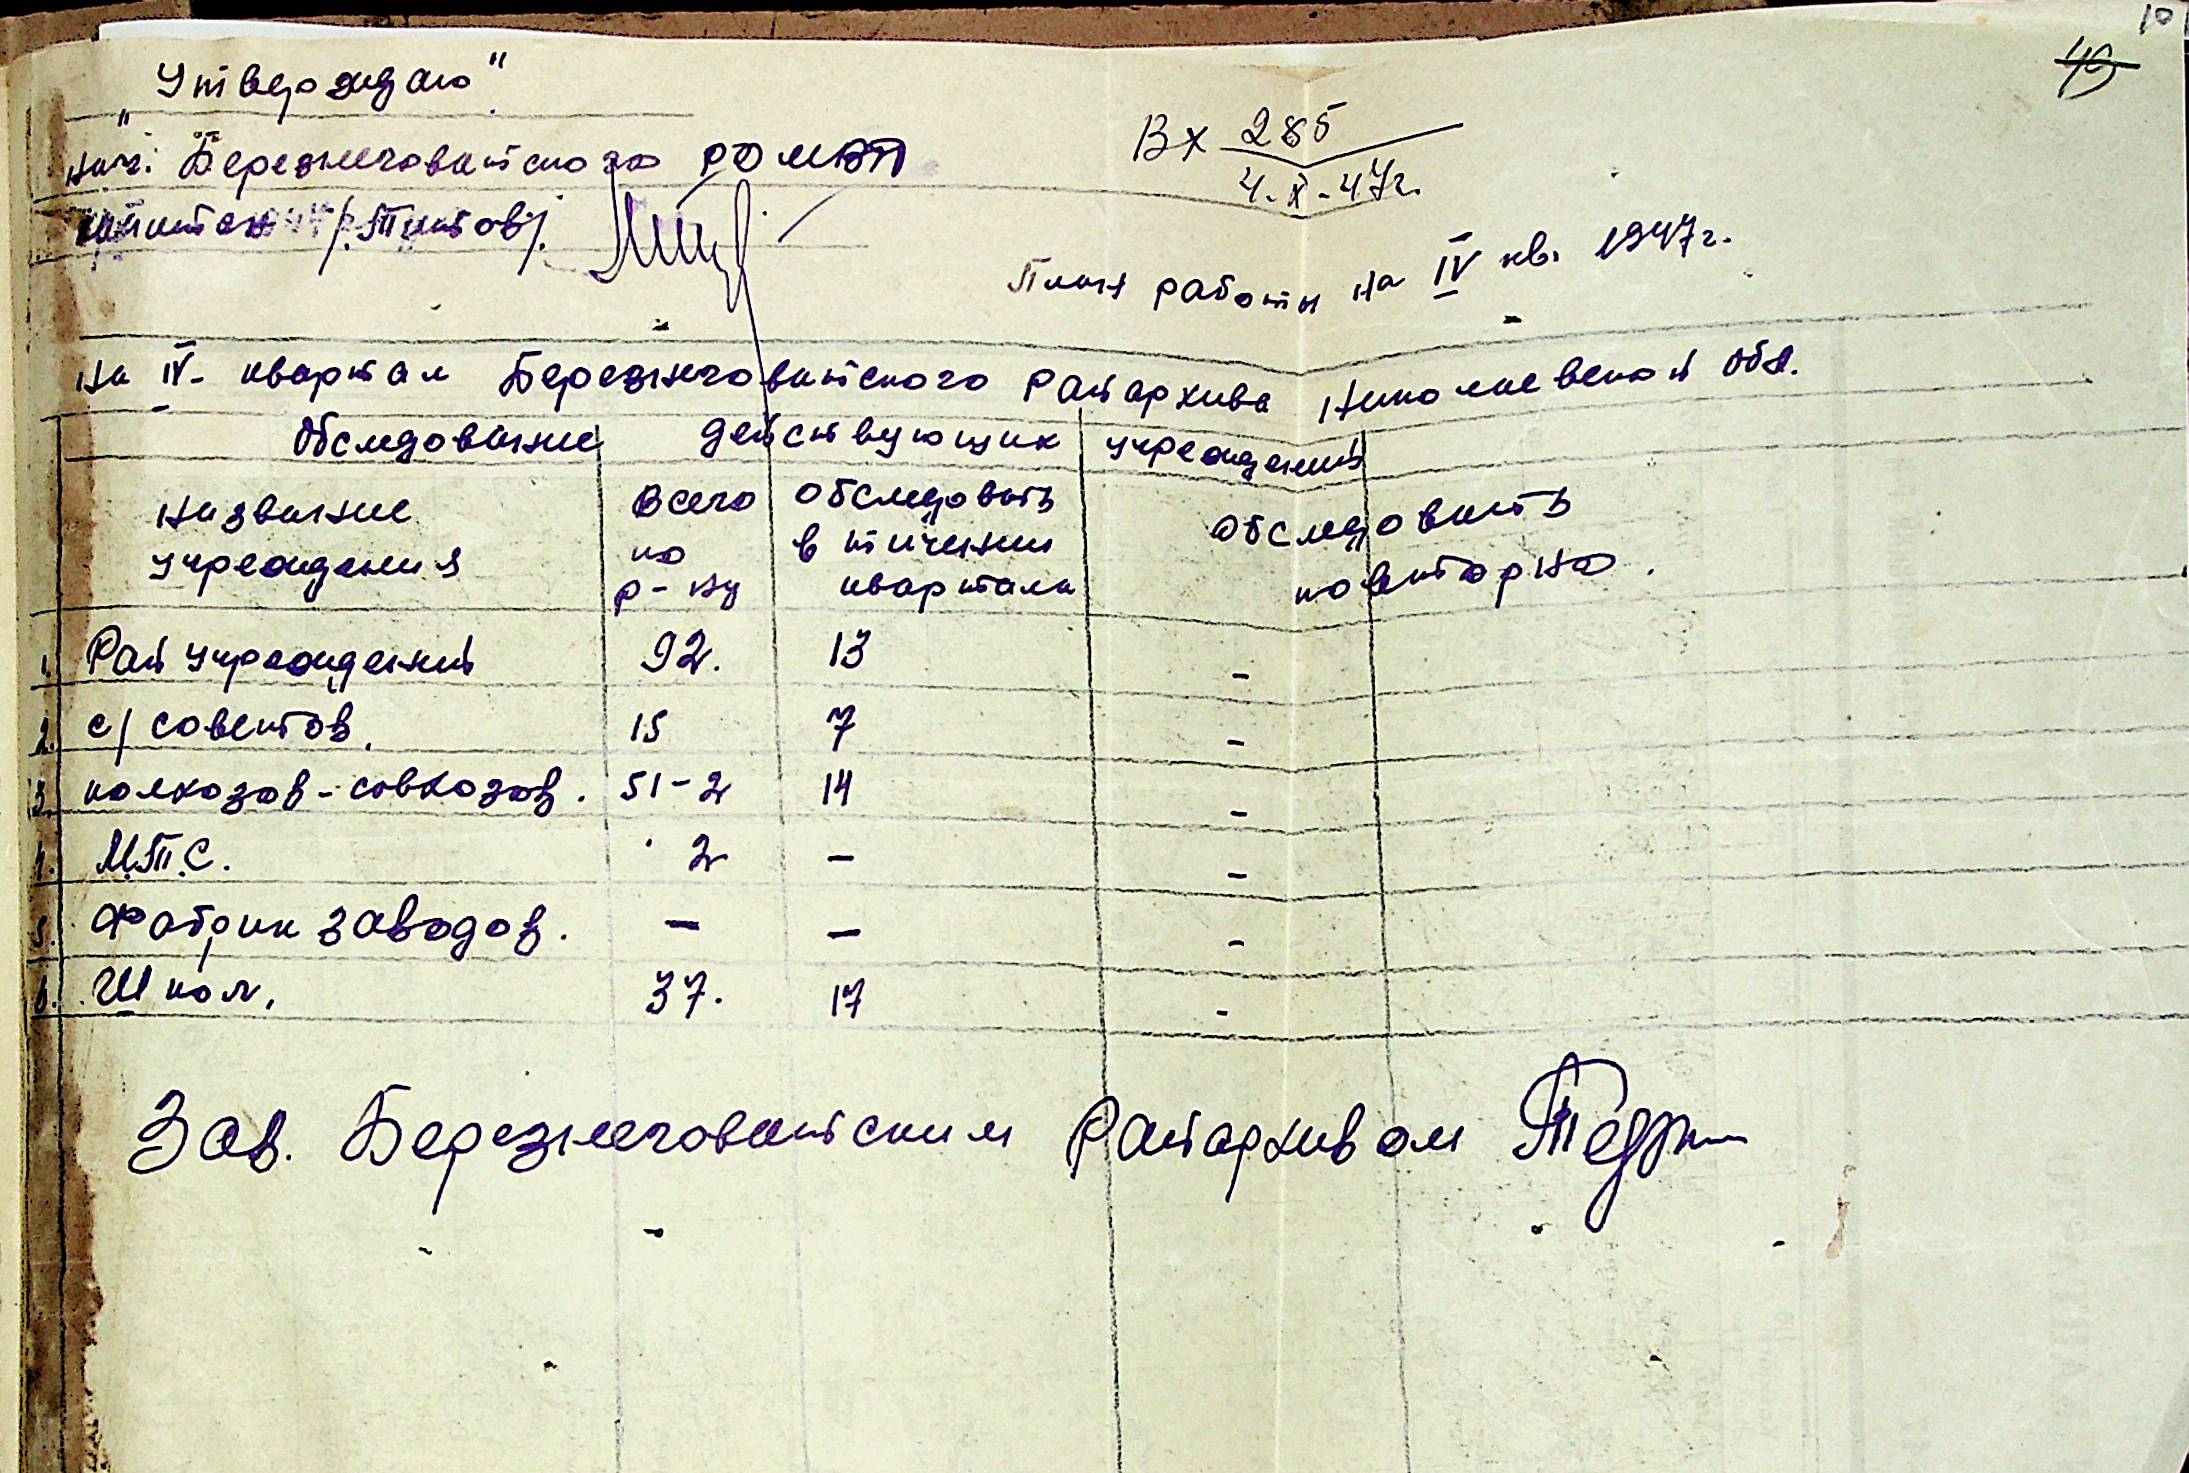 10
49
„Утверждаю"
Нач: Березнеговатского РО МВД
капитан /Титов/.
Вх 285
4-X-47г.
План работы на IV кв. 1947г.
на IV- квартал Березнеговатского Райархива Николаевской обл.
Обследование действующих учреждений
Название учреждения
Всего по р-ну
обследовать в тичении квартала
обследовать повторно.
1. Рай учреждений 92. 13 -
2. с/советов. 15 7 -
3. колхозов-совхозов. 51-2 14 -
4. М.Т.С. 2 - -
5. Фабрик заводов. - - -
6. Школ. 37. 17 -
Зав. Березнеговатским Райархивом